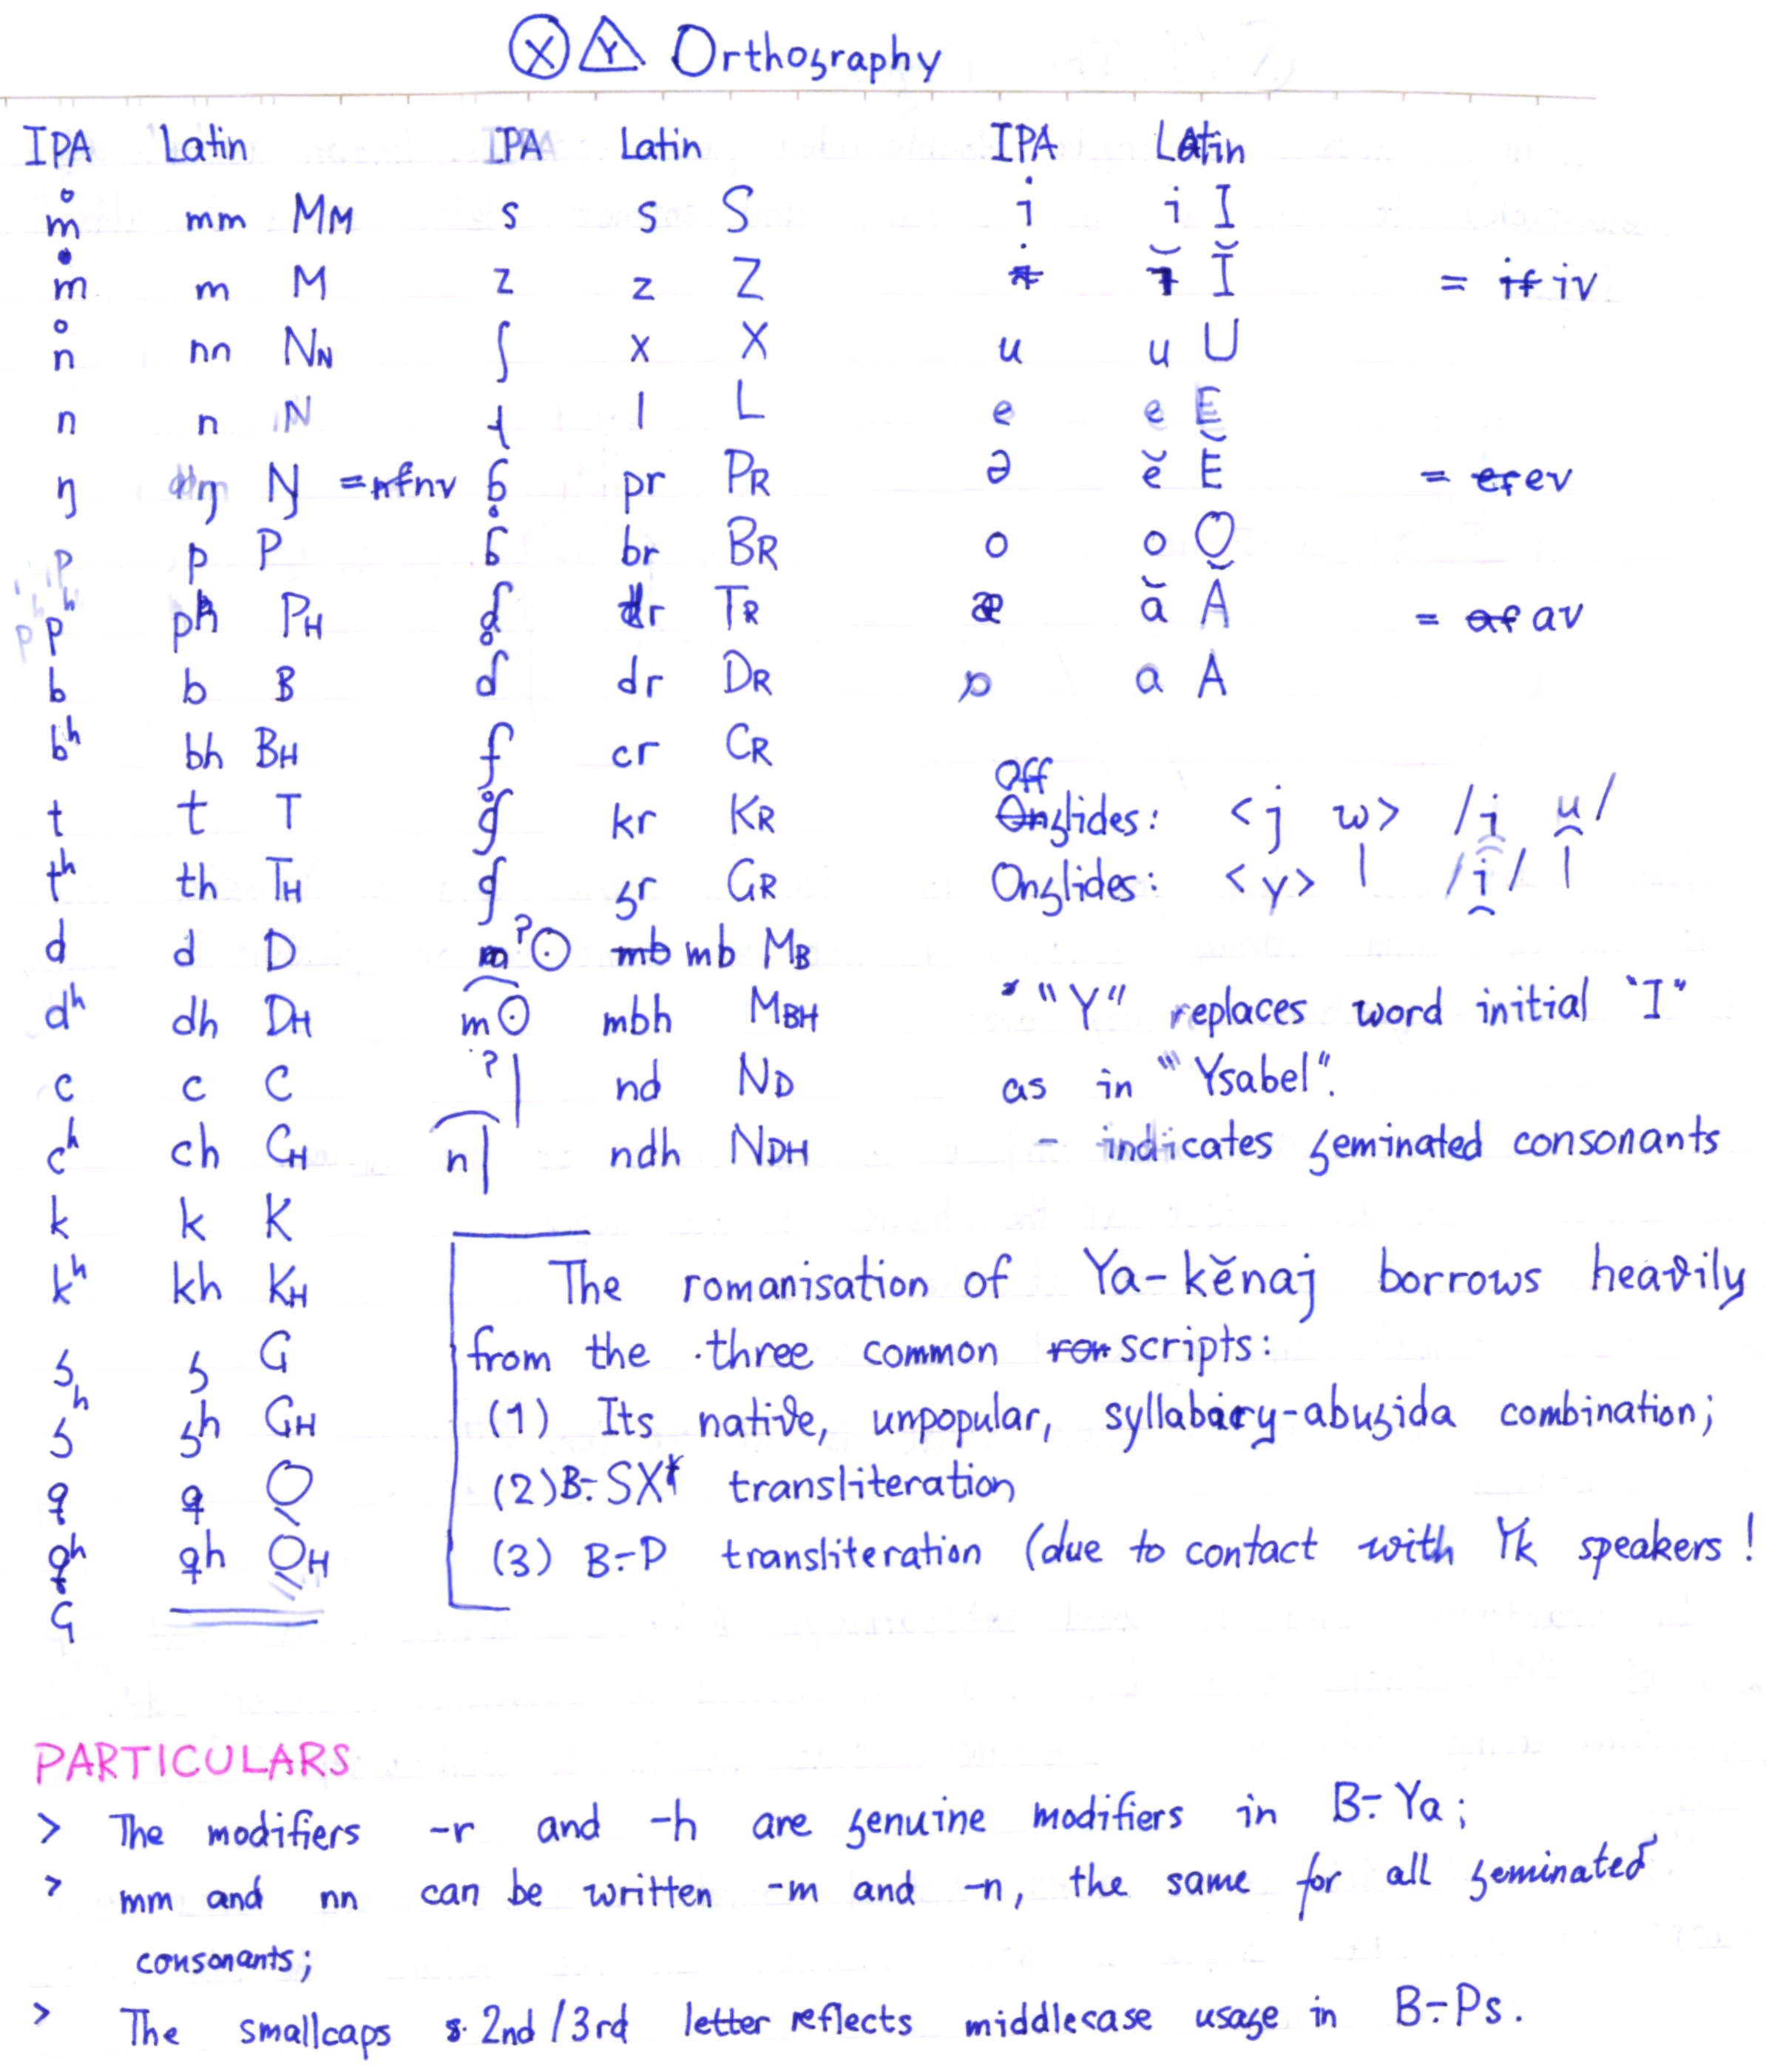 Ⓧ Y Orthography
IPA Latin IPA Latin IPA Latin
m̊ mm Mᴍ s s S i i I
m m M z z Z ĭ Ĭ = iv
n̊ nn Nɴ ʃ x X u u U
n n N l L e e E
ŋ ŋ Ŋ = nv ɓ̥ pr Pʀ ə ĕ Ĕ = ev
p p P ɓ br Bʀ o o O
pʰ ph Pʜ ɗ̥ tr Tʀ æ ă Ă = av
b b B ɗ dr Dʀ ɒ a A
bʰ bh Bʜ ʄ cr Cʀ
t t T ɠ̊ kr Kʀ Offglides: <j w> /i̯ u̯/
tʰ th Tʜ ɠ gr Gʀ Onglides: <y> | /i̯/ |
d d D mˀʘ mb Mʙ
dʰ dh Dʜ m͡ʘ mbh Mʙʜ "Y" replaces word initial "I"
c c C ˀǀ nd Nᴅ as in "Ysabel".
cʰ ch Cʜ n͡ǀ ndh Nᴅʜ - indicates geminated consonants
k k K
kʰ kh Kʜ The romanisation of Ya-kĕnaj borrows heavily
g g G from the three common scripts:
gʰ gh Gʜ (1) Its native, unpopular, syllabary-abugida combination;
q q Q (2) B-SX transliteration
qʰ qh Qʜ (3) B-P transliteration (due to contact with Yk speakers!
ɢ
PARTICULARS
> The modifiers -r and -h are genuine modifiers in B-Ya;
> mm and nn can be written -m and -n, the same for all geminated
consonants;
> The smallcaps 2nd/3rd letter reflects middlecase usage in B-Ps.